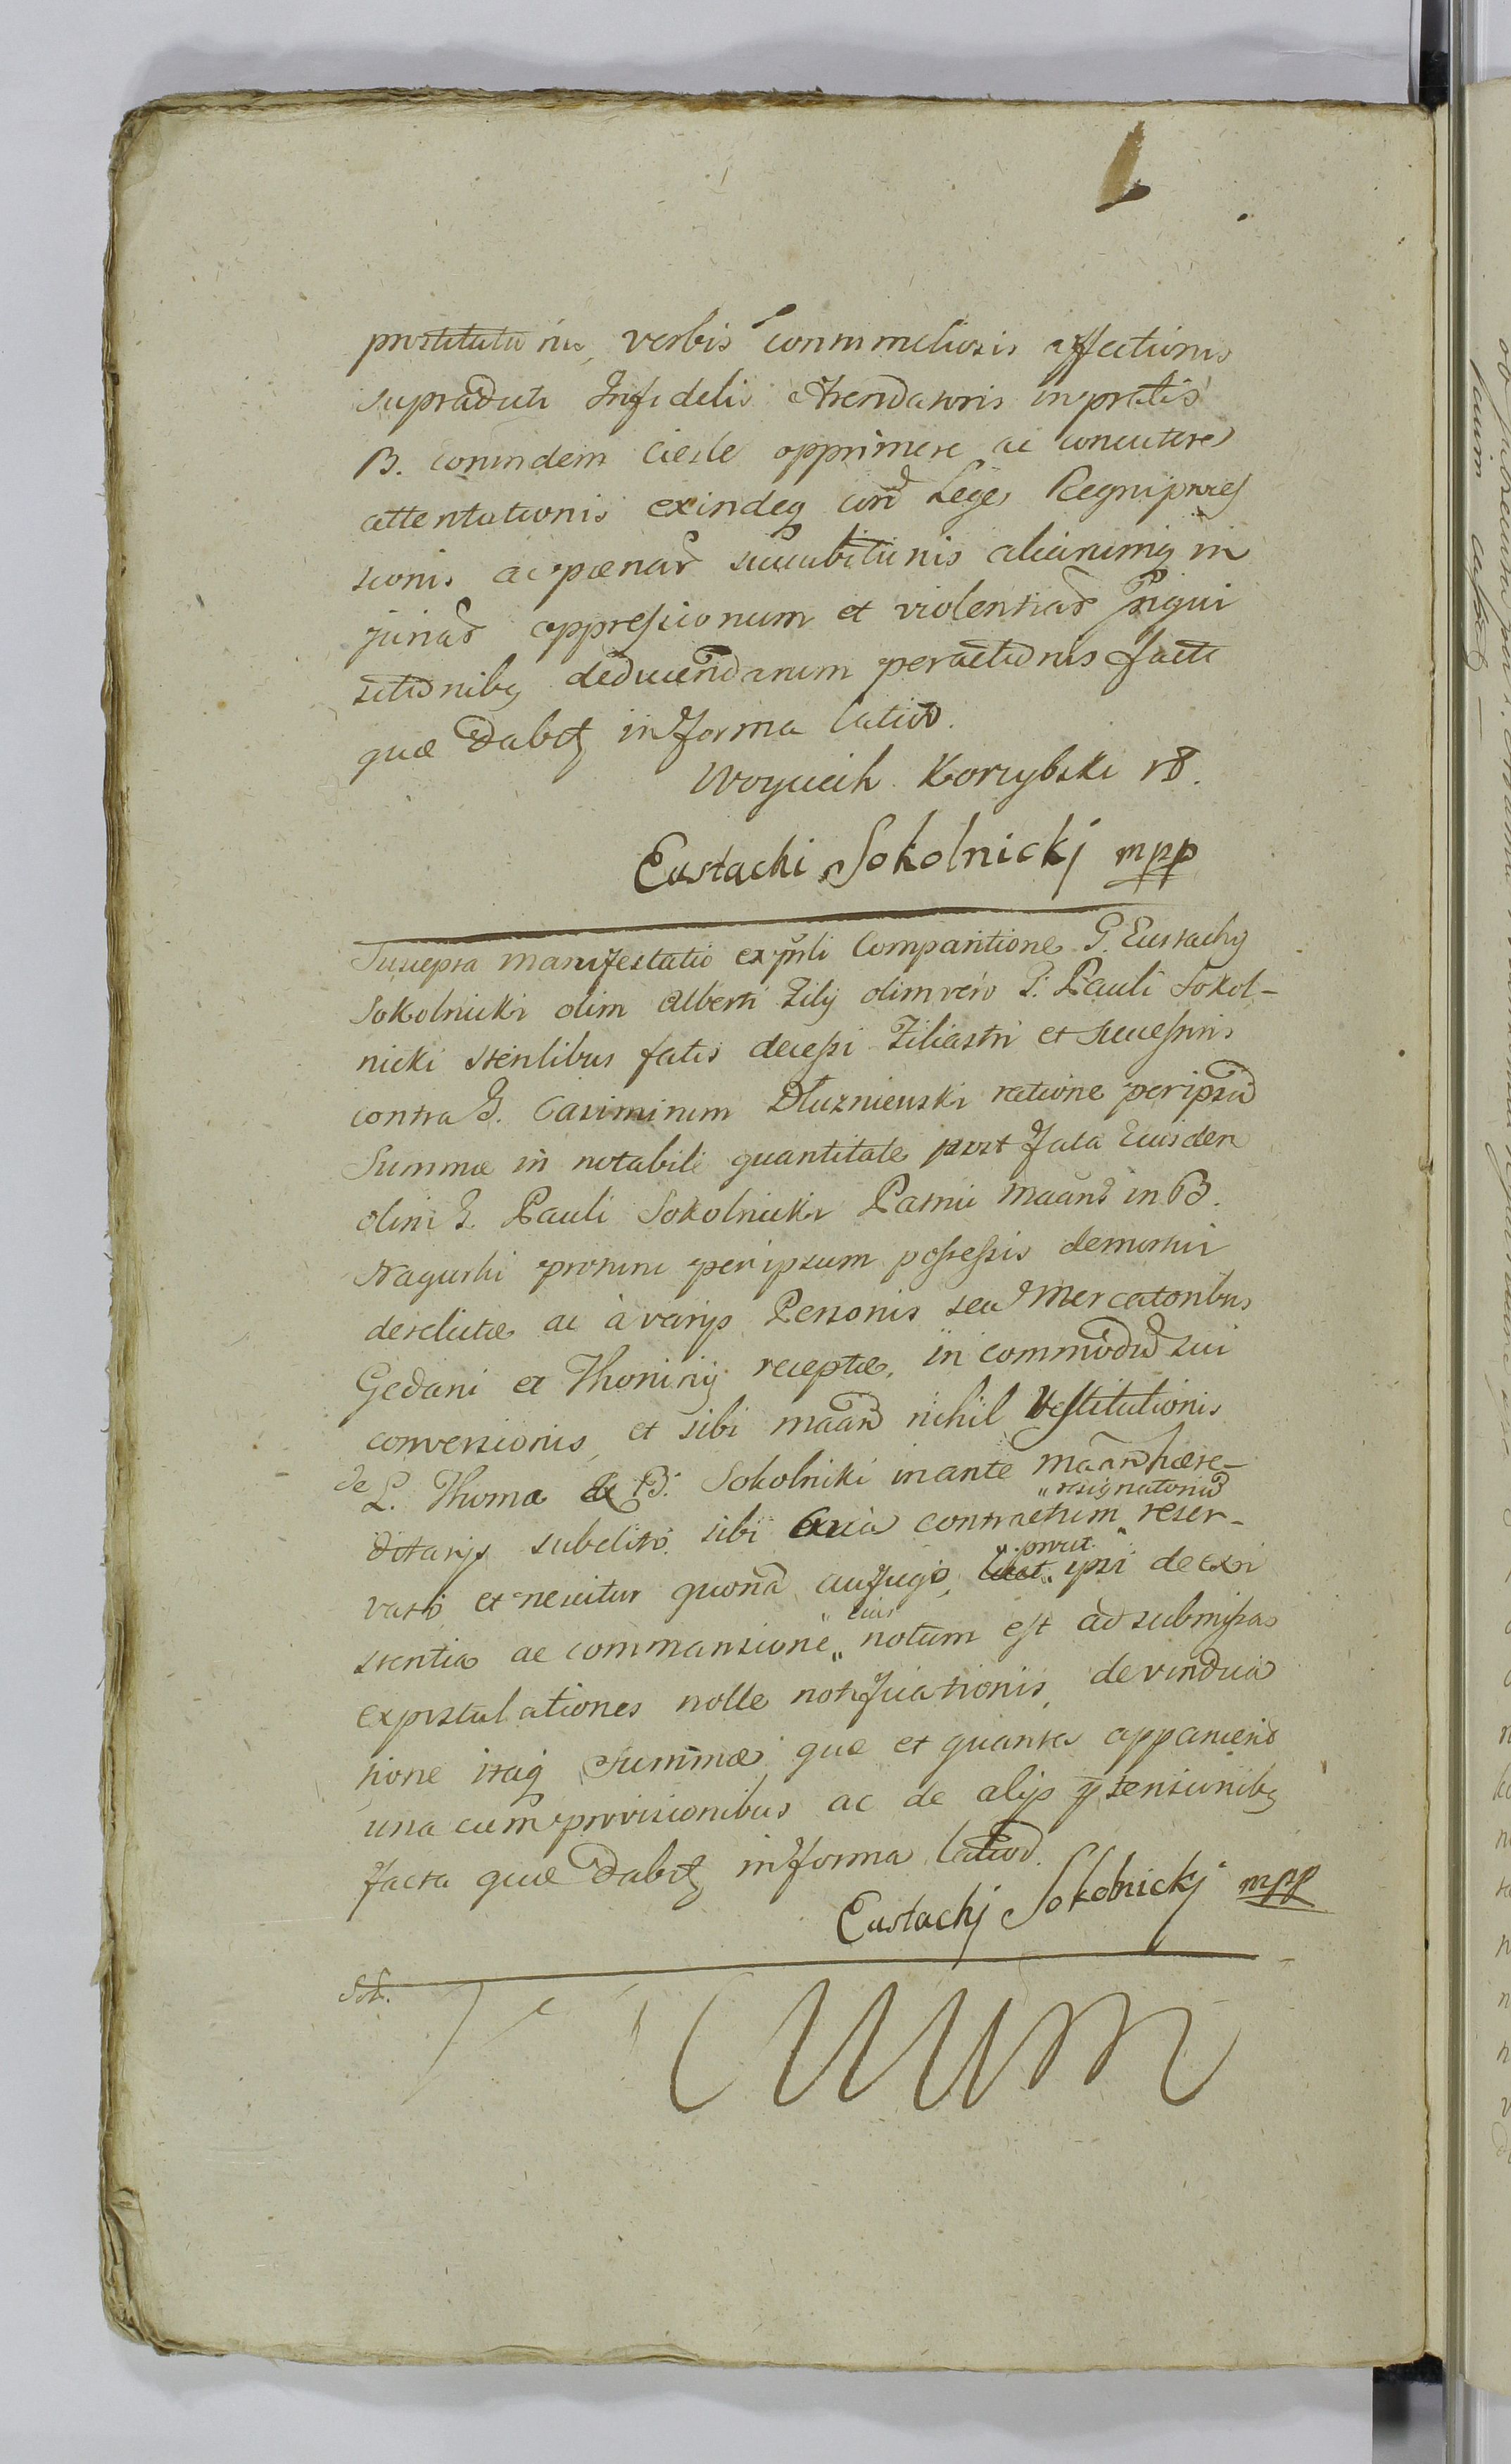 prostitutionis, verbis contumeliosis affectionis
supradicti Infidelis Arendatoris in pratis
B. eorundem Ciesle opprimere ac concutere
attentationis exindeq cond Leges Regni pro-
sionis ac pænar succubitionis aliarumq in
juriar oppressionum et violentiar Inqui
sitionibq deducendarum peractionis facti
quæ dabitq in forma latiori.
Woyciech Korzybski
Eustachi Sokolnickj mpp
Suscepta manifestatio ex pnli Comparitione G. Eustachy
Sokolnicki olim Alberti Filij olim vero G. Pauli Sokol-
nicki sterilibus fatis decessi Filiastri et Successoris
contra G. Casimirum Dłuzniewski ratione per ipsū
Summæ in notabili quantitate post fata Eiusdem
olim G. Pauli Sokolnicki Patrui maand in B.
Nagurki protunc per ipsum possessis demortui
derelictæ ac à varijs Personis seu Mercatoribus
Gedani et Thorinij receptæ, in commodū sui
conversionis, et sibi maand nihil restitutionis
de G. Thoma B. Sokolniki in ante maand hære-
ditarijs subelito sibi contractum "resignatoriū reser-
vato et nescitur quond aufugij, "prout" ipsi de exi
stentia ac commansione "eius notum est ad submissas
expostulationes nolle notificationis, de vindica
tione itaq summæ quæ et quanta apparuerit
una cum provisionibus ac de alijs ptensionibq
facta quæ dabitq in forma latiori.
Eustachj Sokolnickj mpp